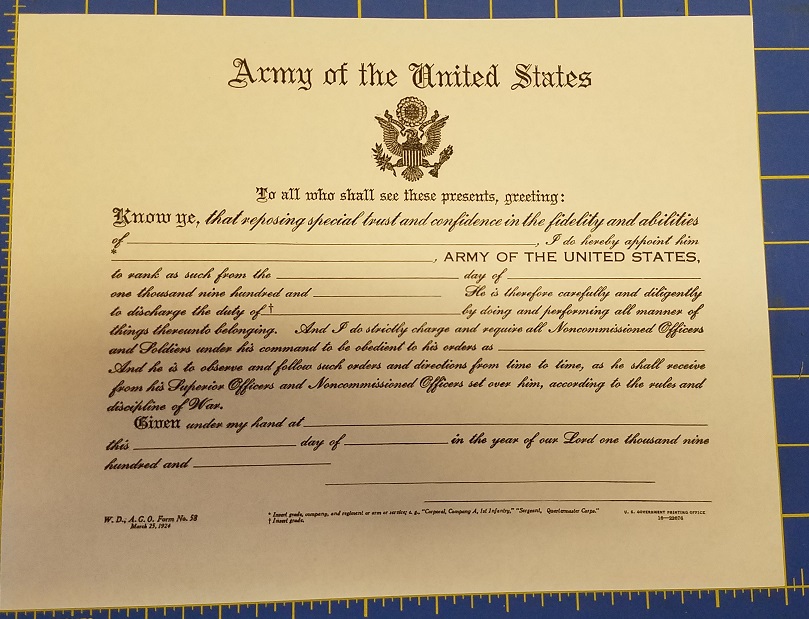 Army of the United States
To all who shall see these presents, greeting:
Know ye, that reposing special trust and confidence in the fidelity and abilities
of , I do hereby appoint him
* , ARMY OF THE UNITED STATES,
to rank as such from the day of
one thousand nine hundred and He is therefore carefully and diligently
to discharge the duty of † by doing and performing all manner of
things thereunto belonging. And I do strictly charge and require all Noncommissioned Officers
and Soldiers under his command to be obedient to his orders as
And he is to observe and follow such orders and directions from time to time, as he shall receive
from his Superior Officers and Noncommissioned Officers set over him, according to the rules and
discipline of War.
Given under my hand at
this day of in the year of our Lord one thousand nine
hundred and
W. D., A. G. O. Form No. 58
March 25, 1924
* Insert grade, company, and regiment or arm or service; e. g., "Corporal, Company A, 1st Infantry," "Sergeant, Quartermaster Corps."
† Insert grade.
U. S. GOVERNMENT PRINTING OFFICE